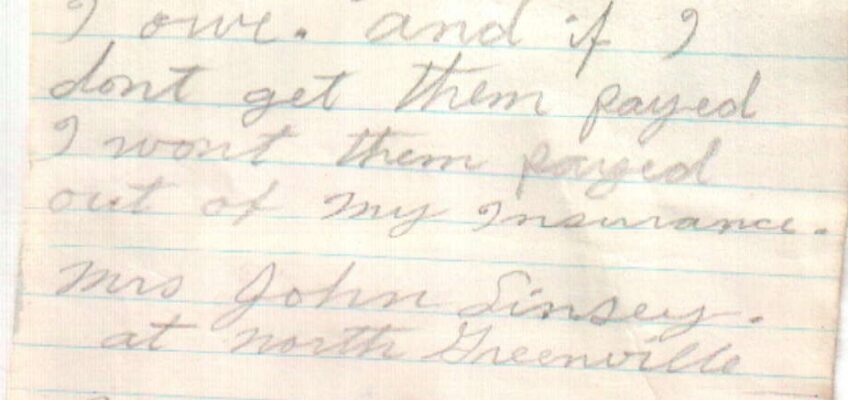 I owe. and if I
dont get them payed
I wont them payed
out of my Insurance.
Mrs John Linsey.
at north Greenville